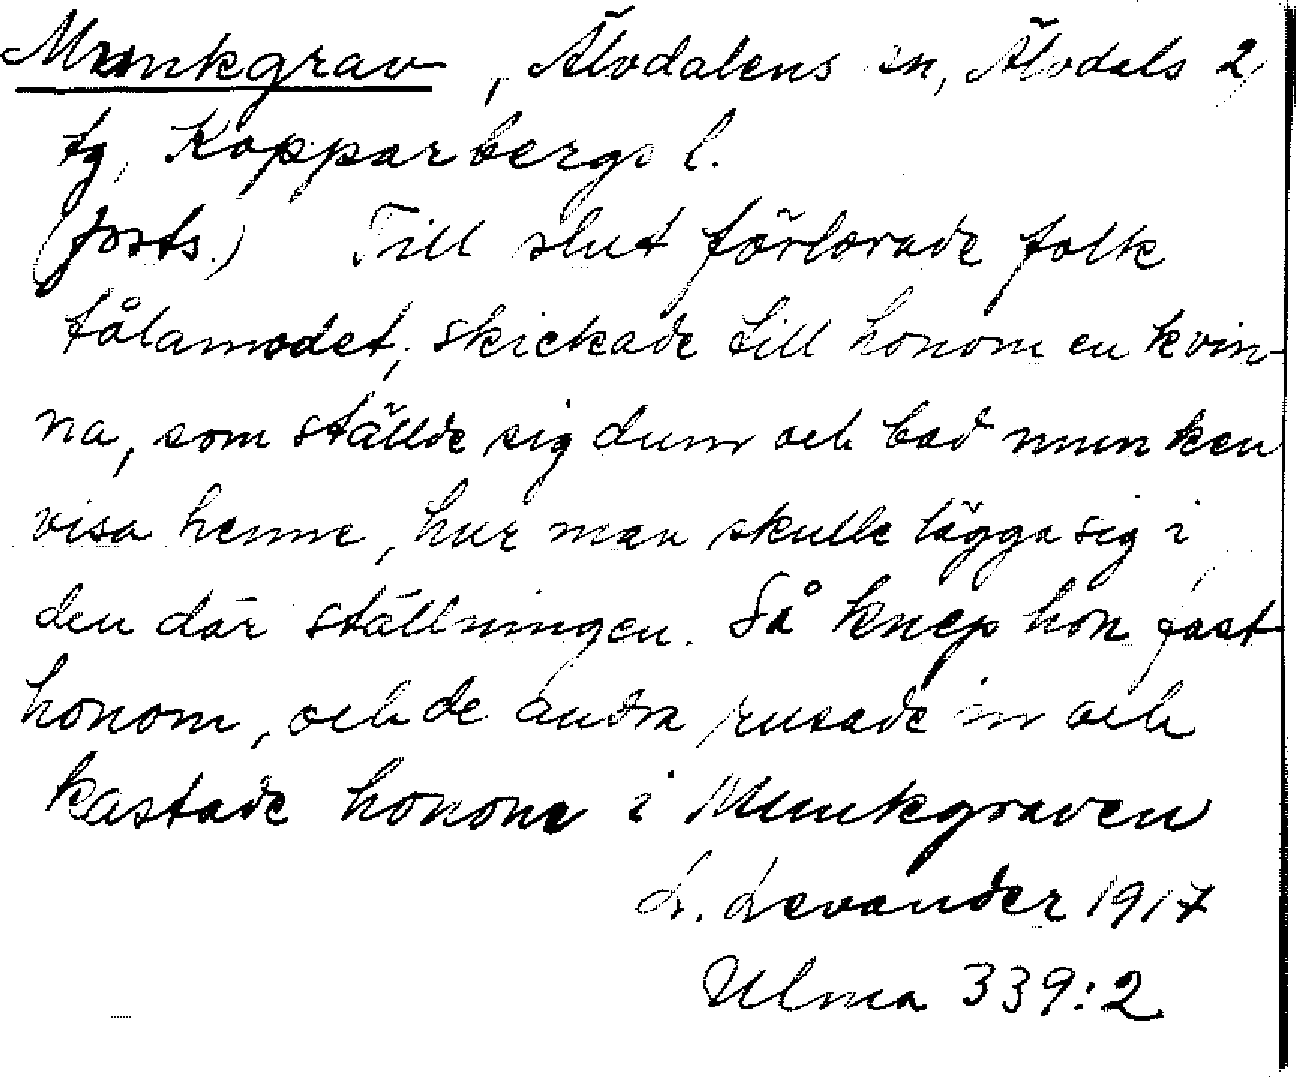 Munkgrav, Älvdalens sn, Älvdals 2)
tg, Kopparbergs l.
(forts.) Till slut förlorade folk
tålamodet, skickade till honom en kvin-
na, som ställde sig dum och bad munken
visa henne, hur man skulle lägga sig i
den där ställningen. Så knep hon fast
honom, och de andra rusade in och
kastade honom i Munkgraven
L. Levander 1917
Ulma 339:2